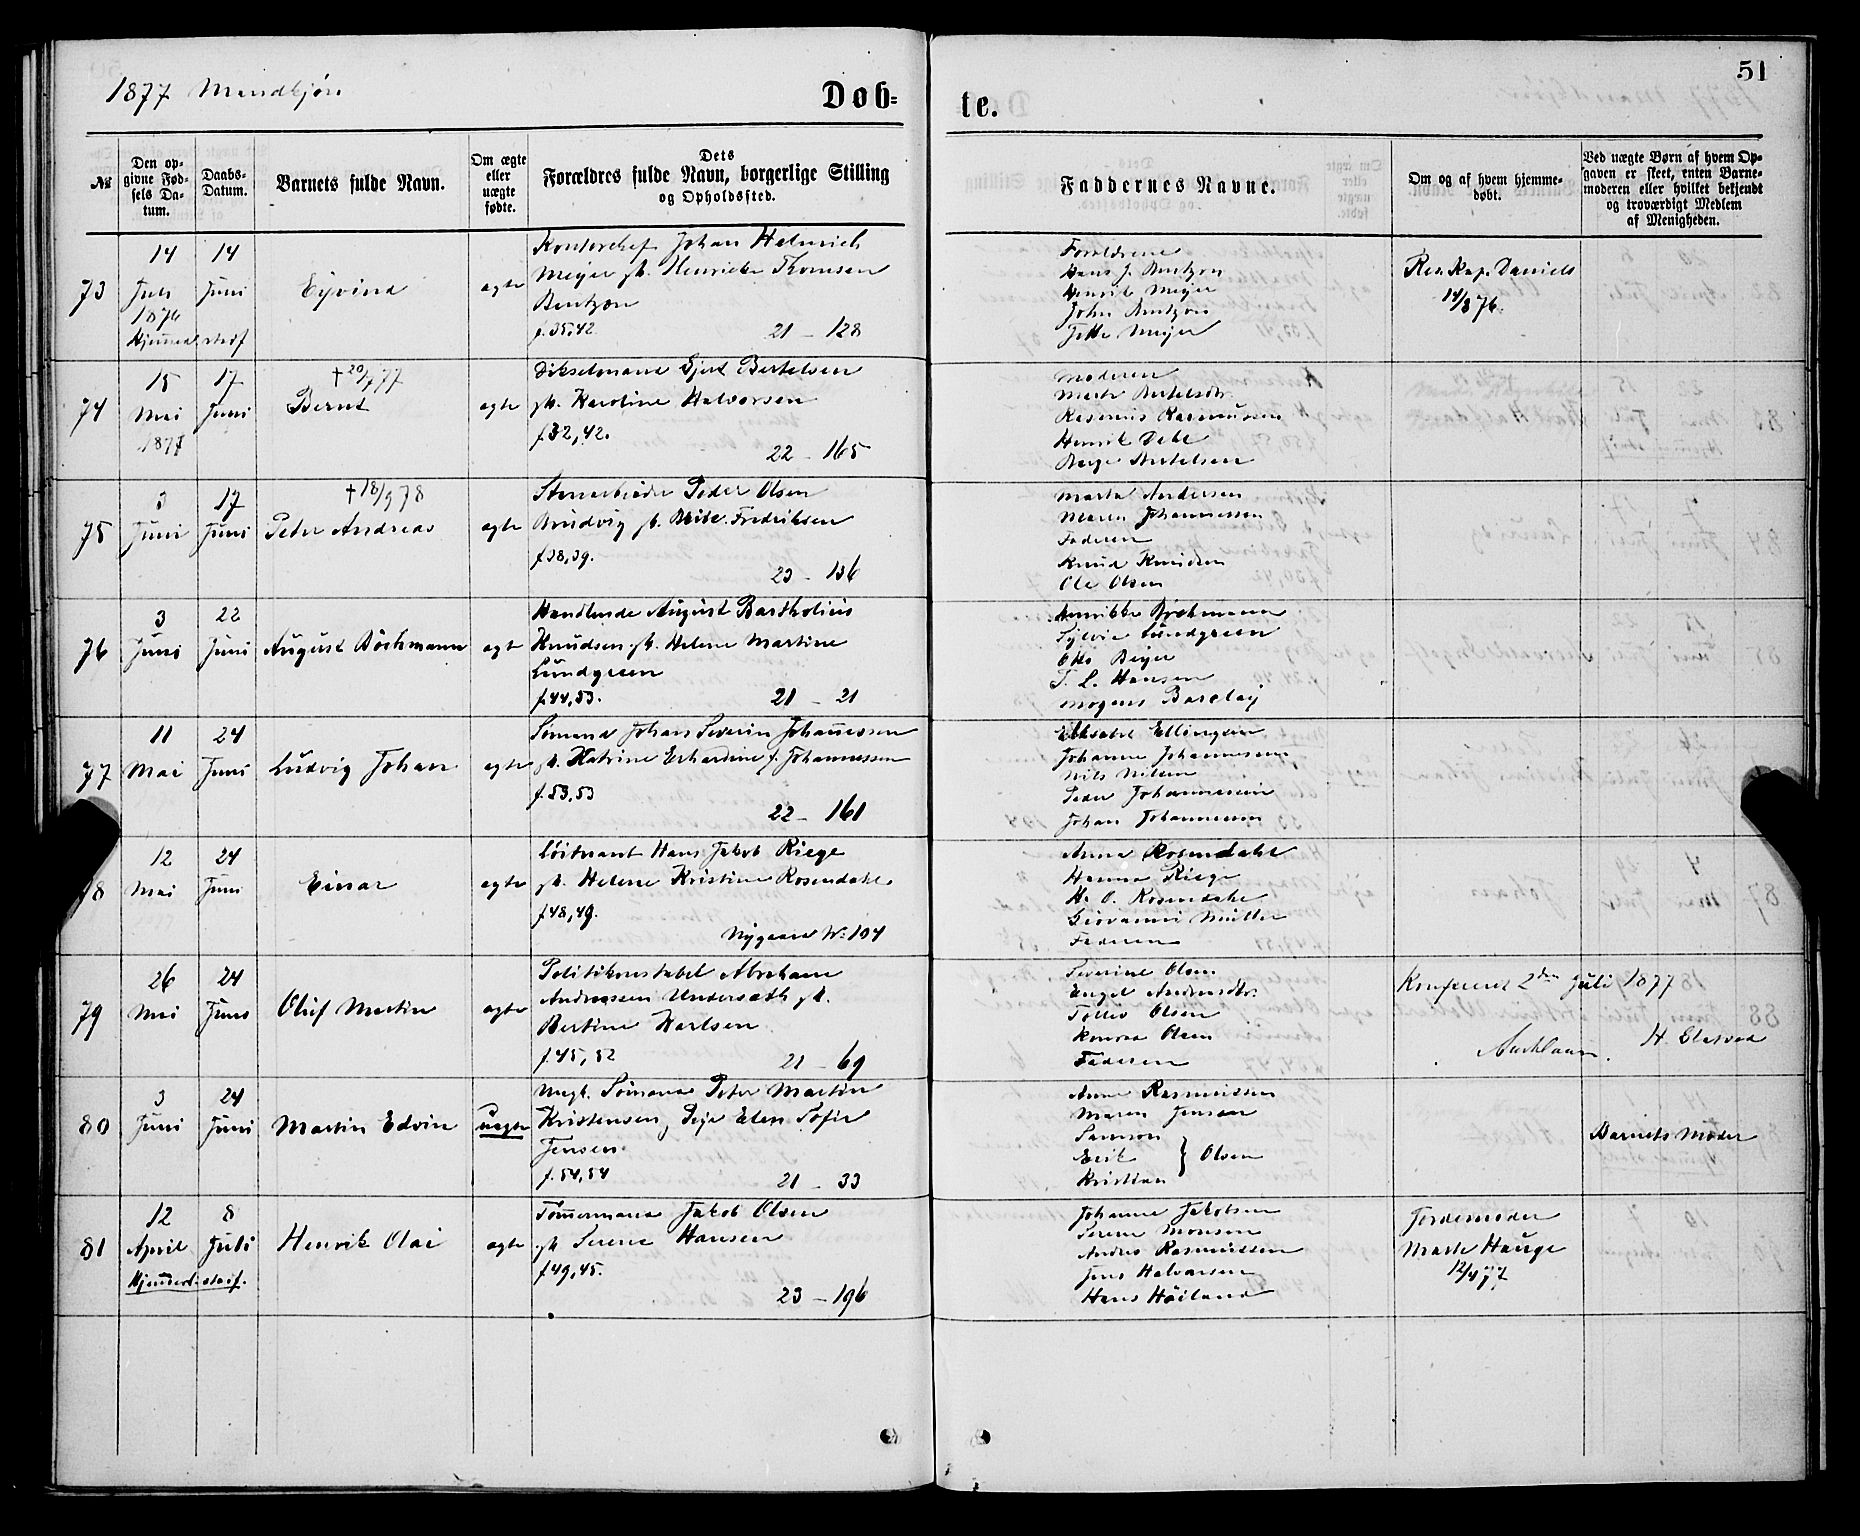 51
1877 Mandkjøn
Døb-
te.
№
Den op-
givne Fød-
sels Da-
tum.
Daabs-
Datum.
Barnets fulde Navn.
Om ægte
eller
uægte
fødte.
Dets
Forældres fulde Navn, borgerlige Stilling
og Opholdssted.
Faddernes Navne.
Om og af hvem hjemme-
døbt.
Ved uægte Børn af hvem Op-
gaven er skeet, enten Barne-
moderen eller hvilket bekjendt
og troværdigt Medlem
af Menigheden.
73
14
Juli
1876
Hjemmedstadf
14
Juni
Eyvind
ægte
Kontorchef Johan Helmich
Meyer gh. Henrieke Thomsen
Bentzon
f. 35, 42.
21 - 128
Forældrene
Hans J. Bentzon
Henrik Meyer
John Bentzon
Jette Meyer
Res. Kap. Daniels
14/8 76.
74
15
Mai
1877
17
Juni
† 20/7 77
Bernt
ægte
Dikselmand Gjert Bertelsen
gh. Karoline Halvorsen
f 32, 42.
22 - 165
Moderen
Marte Bertelsdr.
Rasmus Rasmussen
Henrik Dale
Berge Bertelsen
75
3
Juni
17
Juni
† 18/9 78
Peder Andreas
ægte
Stenarbeider Peder Olsen
Brudvig gh. Brite Fredriksen
f 38, 39.
23 - 136
Marta Andersen
Maren Johannessen
Faderen
Knud Knudsen
Ole Olsen
76
3
Juni
22
Juni
August Böchmann
ægte
Handlende August Bartholius
Knudsen gh. Helene Martine
Lundgreen
f 44, 53.
21 - 21
Henrikke Böchmann
Sylvie Lundgreen
Otto Beyer
T. L. Hansen
Mogens Barclay
77
11
Mai
24
Juni
Ludvig Johan
ægte
Sömand Johan Severin Johannessen
gh. Katrine Erhardine f. Johannessen
f. 53, 53
22 - 161
Elisabet Ellingsen
Johanne Johannessen
Nils Nilsen
Peder Johannessen
Johan Johannessen
78
12
Mai
24
Juni
Einar
ægte
Löitnant Hans Jakob Riege
gh. Helene Kristine Rosendahl
f 48, 49.
Nygaard № 104
Anna Rosendahl
Hanna Riege
H. O. Rosendahl
Giovanni Müller
Faderen
79
26
Mai
24
Juni
Oluf Martin
ægte
Politikonstabel Abraham
Andreassen Undersæth gh.
Bertine Karlsen
f. 45, 52
21 - 69
Severine Olsen
Engel Andersdtr.
Tollev Olsen
Konrad Olsen
Faderen
Konfereret 2den Juli 1877
80
3
Juni
24
Juni
Martin Edvin
Uægte
uægte
Ungk. Sömand Peter Martin
Kristensen, Pige Elen Sofie
Jensen
f. 54, 54
21 - 33
Anne Rasmussen
Maren Jensen
Samson
Erik } Olsen
Kristian
Barnets Moder
81
12
April
Hjemmed. stadf.
8
Juli
Henrik Olai
ægte
Tömmermand Jakob Olsen
gh. Serene Hansen
f 49, 45.
23 - 196
Johanne Jakobsen
Serene Monsen
Andres Rasmussen
Jens Halvorsen
Hans Höiland
Jordemoder
Marte Hauge
12/4 77